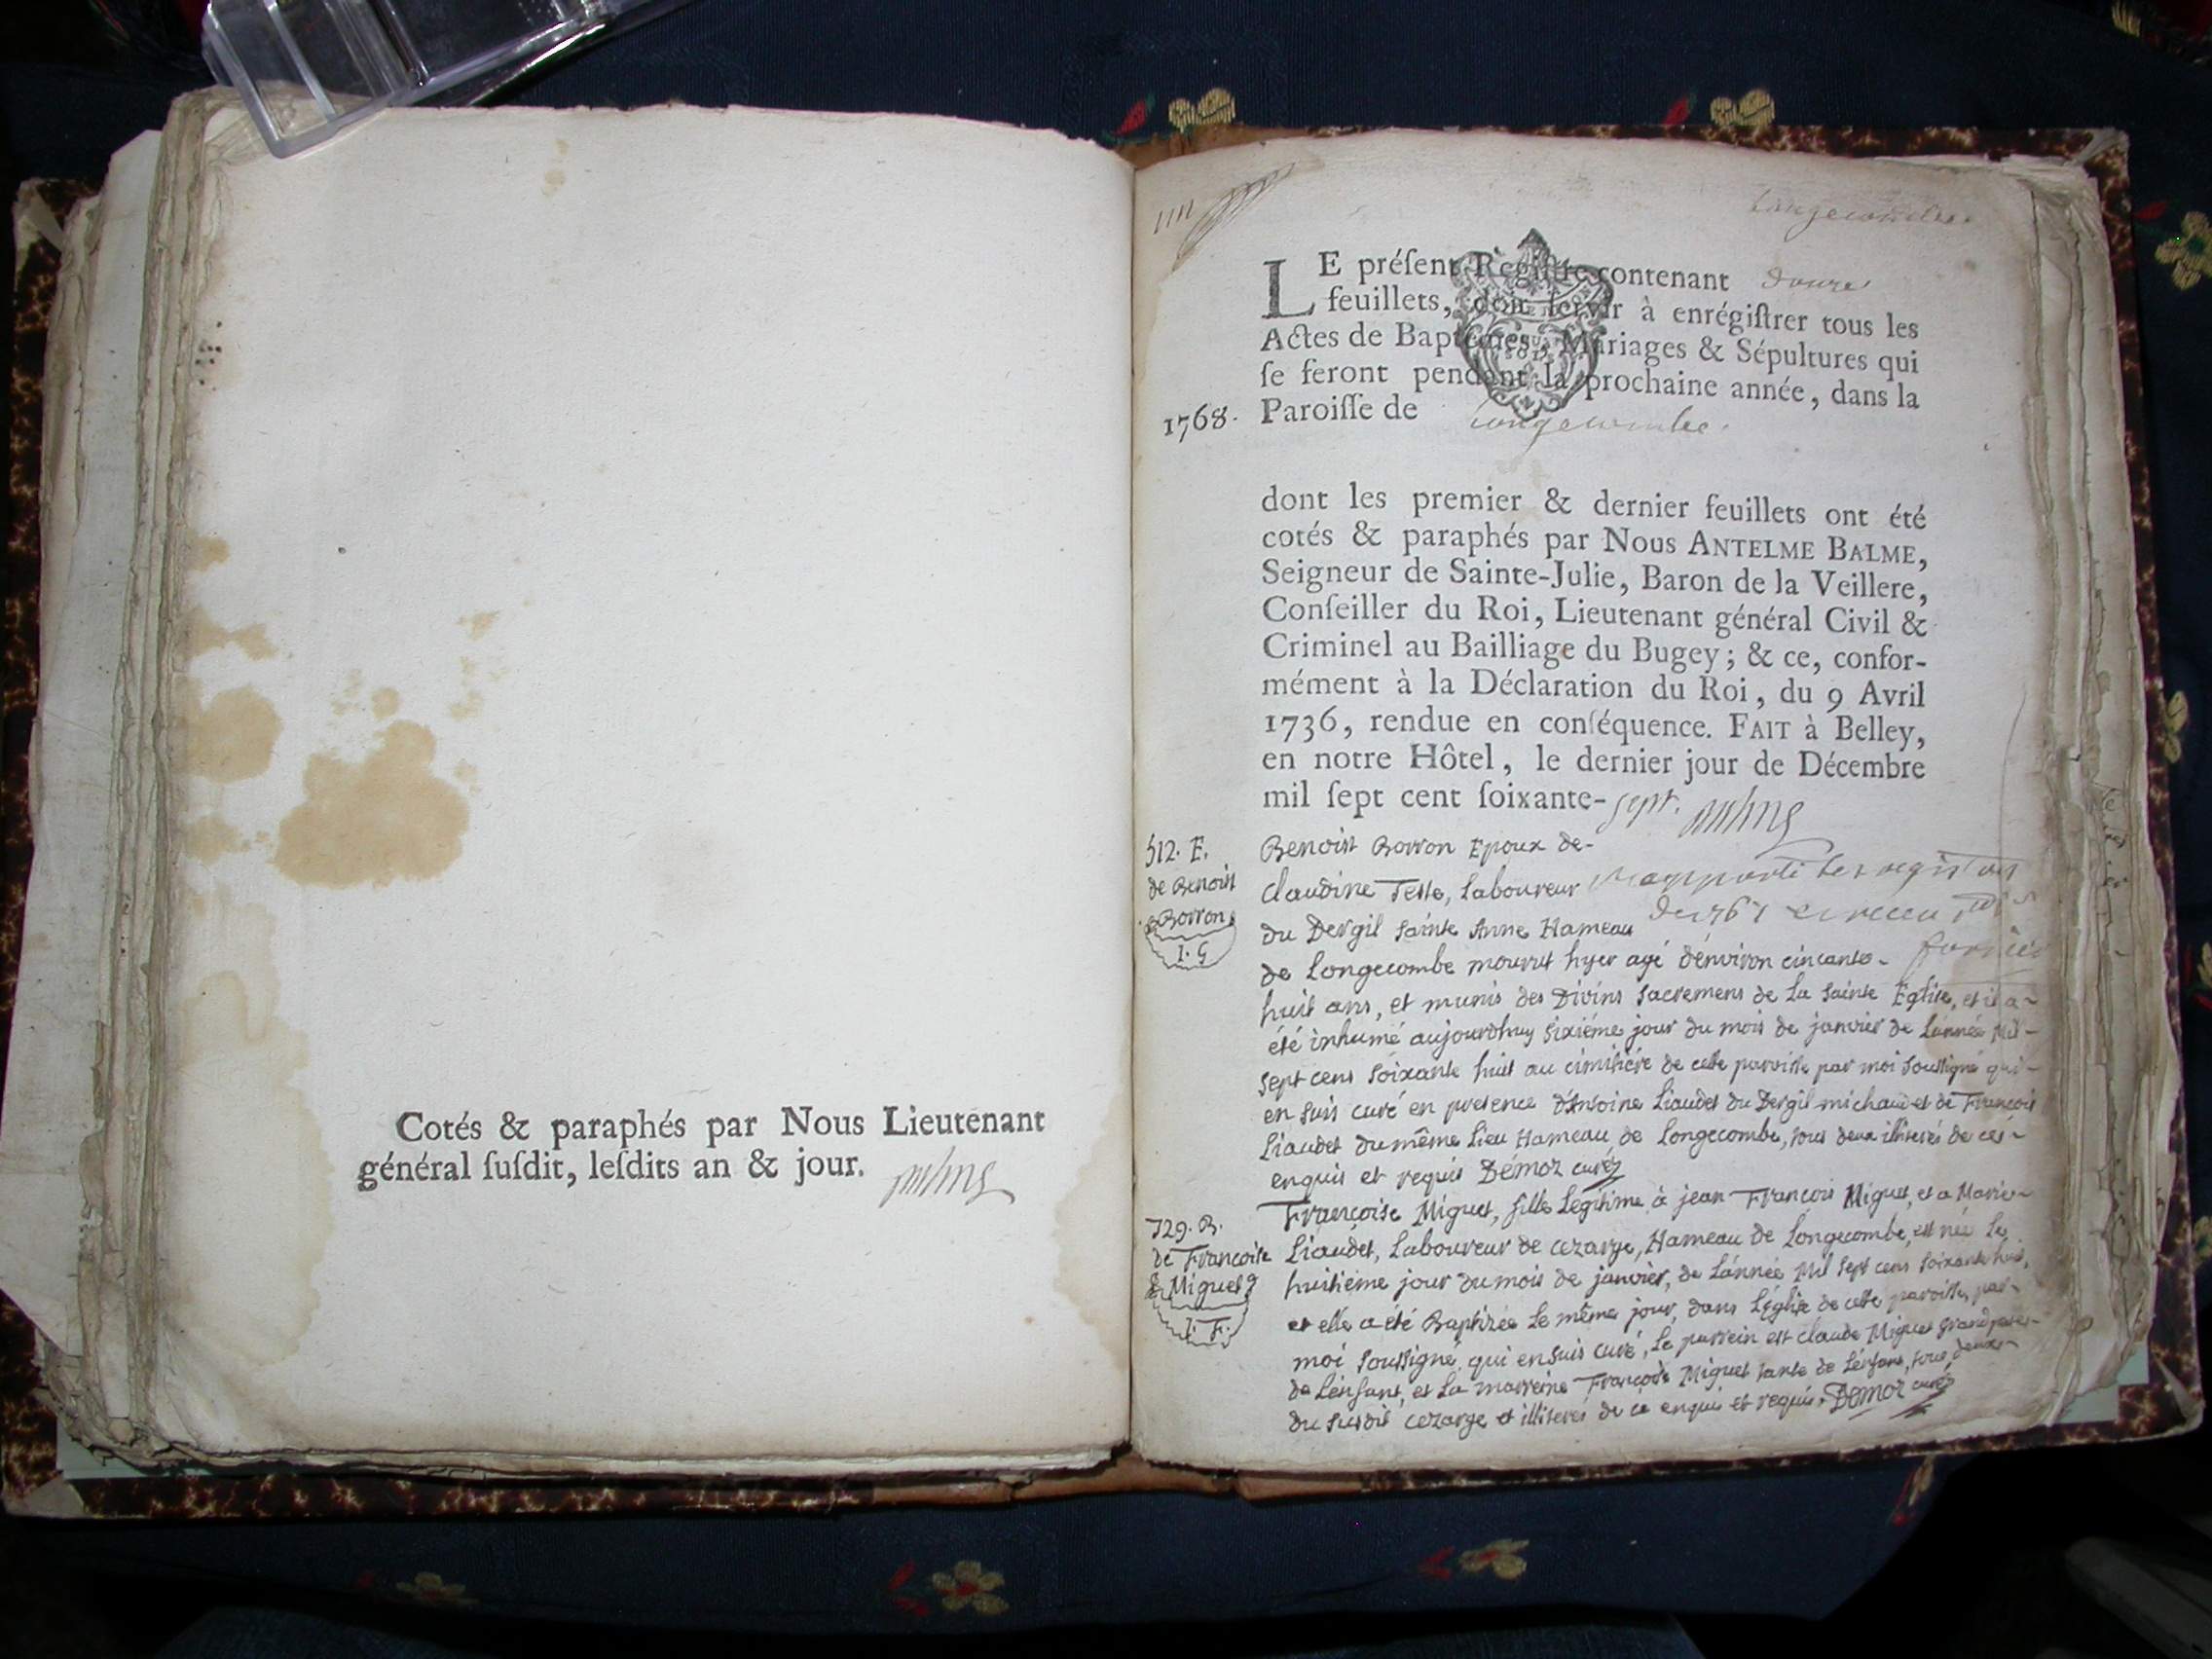 Cotés & paraphés par Nous Lieutenant
général ſuſdit, leſdits an & jour.
Longecombe.
LE préſent Regiſtre contenant douze
feuillets, doit ſervir à enrégiſtrer tous les
Actes de Baptêmes, Mariages & Sépultures qui
ſe feront pendant la prochaine année, dans la
1768. Paroiſſe de Longecombe.
dont les premier & dernier feuillets ont été
cotés & paraphés par Nous ANTELME BALME,
Seigneur de Sainte-Julie, Baron de la Veillere,
Conſeiller du Roi, Lieutenant général Civil &
Criminel au Bailliage du Bugey; & ce, confor-
mément à la Déclaration du Roi, du 9 Avril
1736, rendue en conſéquence. FAIT à Belley,
en notre Hôtel, le dernier jour de Décembre
mil ſept cent ſoixante-sept. Balme
512. E.
de Benoist
Borron
1. G
Benoist Borron Epoux de-
Claudine Teste, Laboureur
du Dergil Sainte Anne Hameau
de Longecombe mourut hyer agé d'énviron cincante-
huit ans, et munis des Divins Sacremens de La Sainte Eglise, et il a-
été inhumé aujourdhuy Sixiéme jour du mois de janvier de L'année Mil-
Sept cens Soixante huit au cimitiére de cette paroisse par moi Soussigné qui-
en Suis curé en presence d'Antoine Liaudet du Dergil michaud et de François
Liaudet du même Lieu Hameau de Longecombe, tous deux illiterés de ces-
enquis et requis Démoz curéz
729. B.
de Françoise
Miguet
1. F.
Françoise Miguet, fille Légitime à jean François Miguet, et a Marie-
Liaudet, Laboureur de cezarge, Hameau de Longecombe, est née Le
huitiéme jour du mois de janvier, de L'année Mil Sept cens Soixante huit,
et elle a été Baptizée Le même jour, dans L'Eglise de cette paroisse, par-
moi Soussigné, qui en Suis curé, Le parrein est claude Miguet grand pere-
de L'énfant, et La marreine Françoise Miguet tante de L'énfant, tous deux-
du Susdit cezarge et illiterés de ce enquis et requis. Démoz curéz